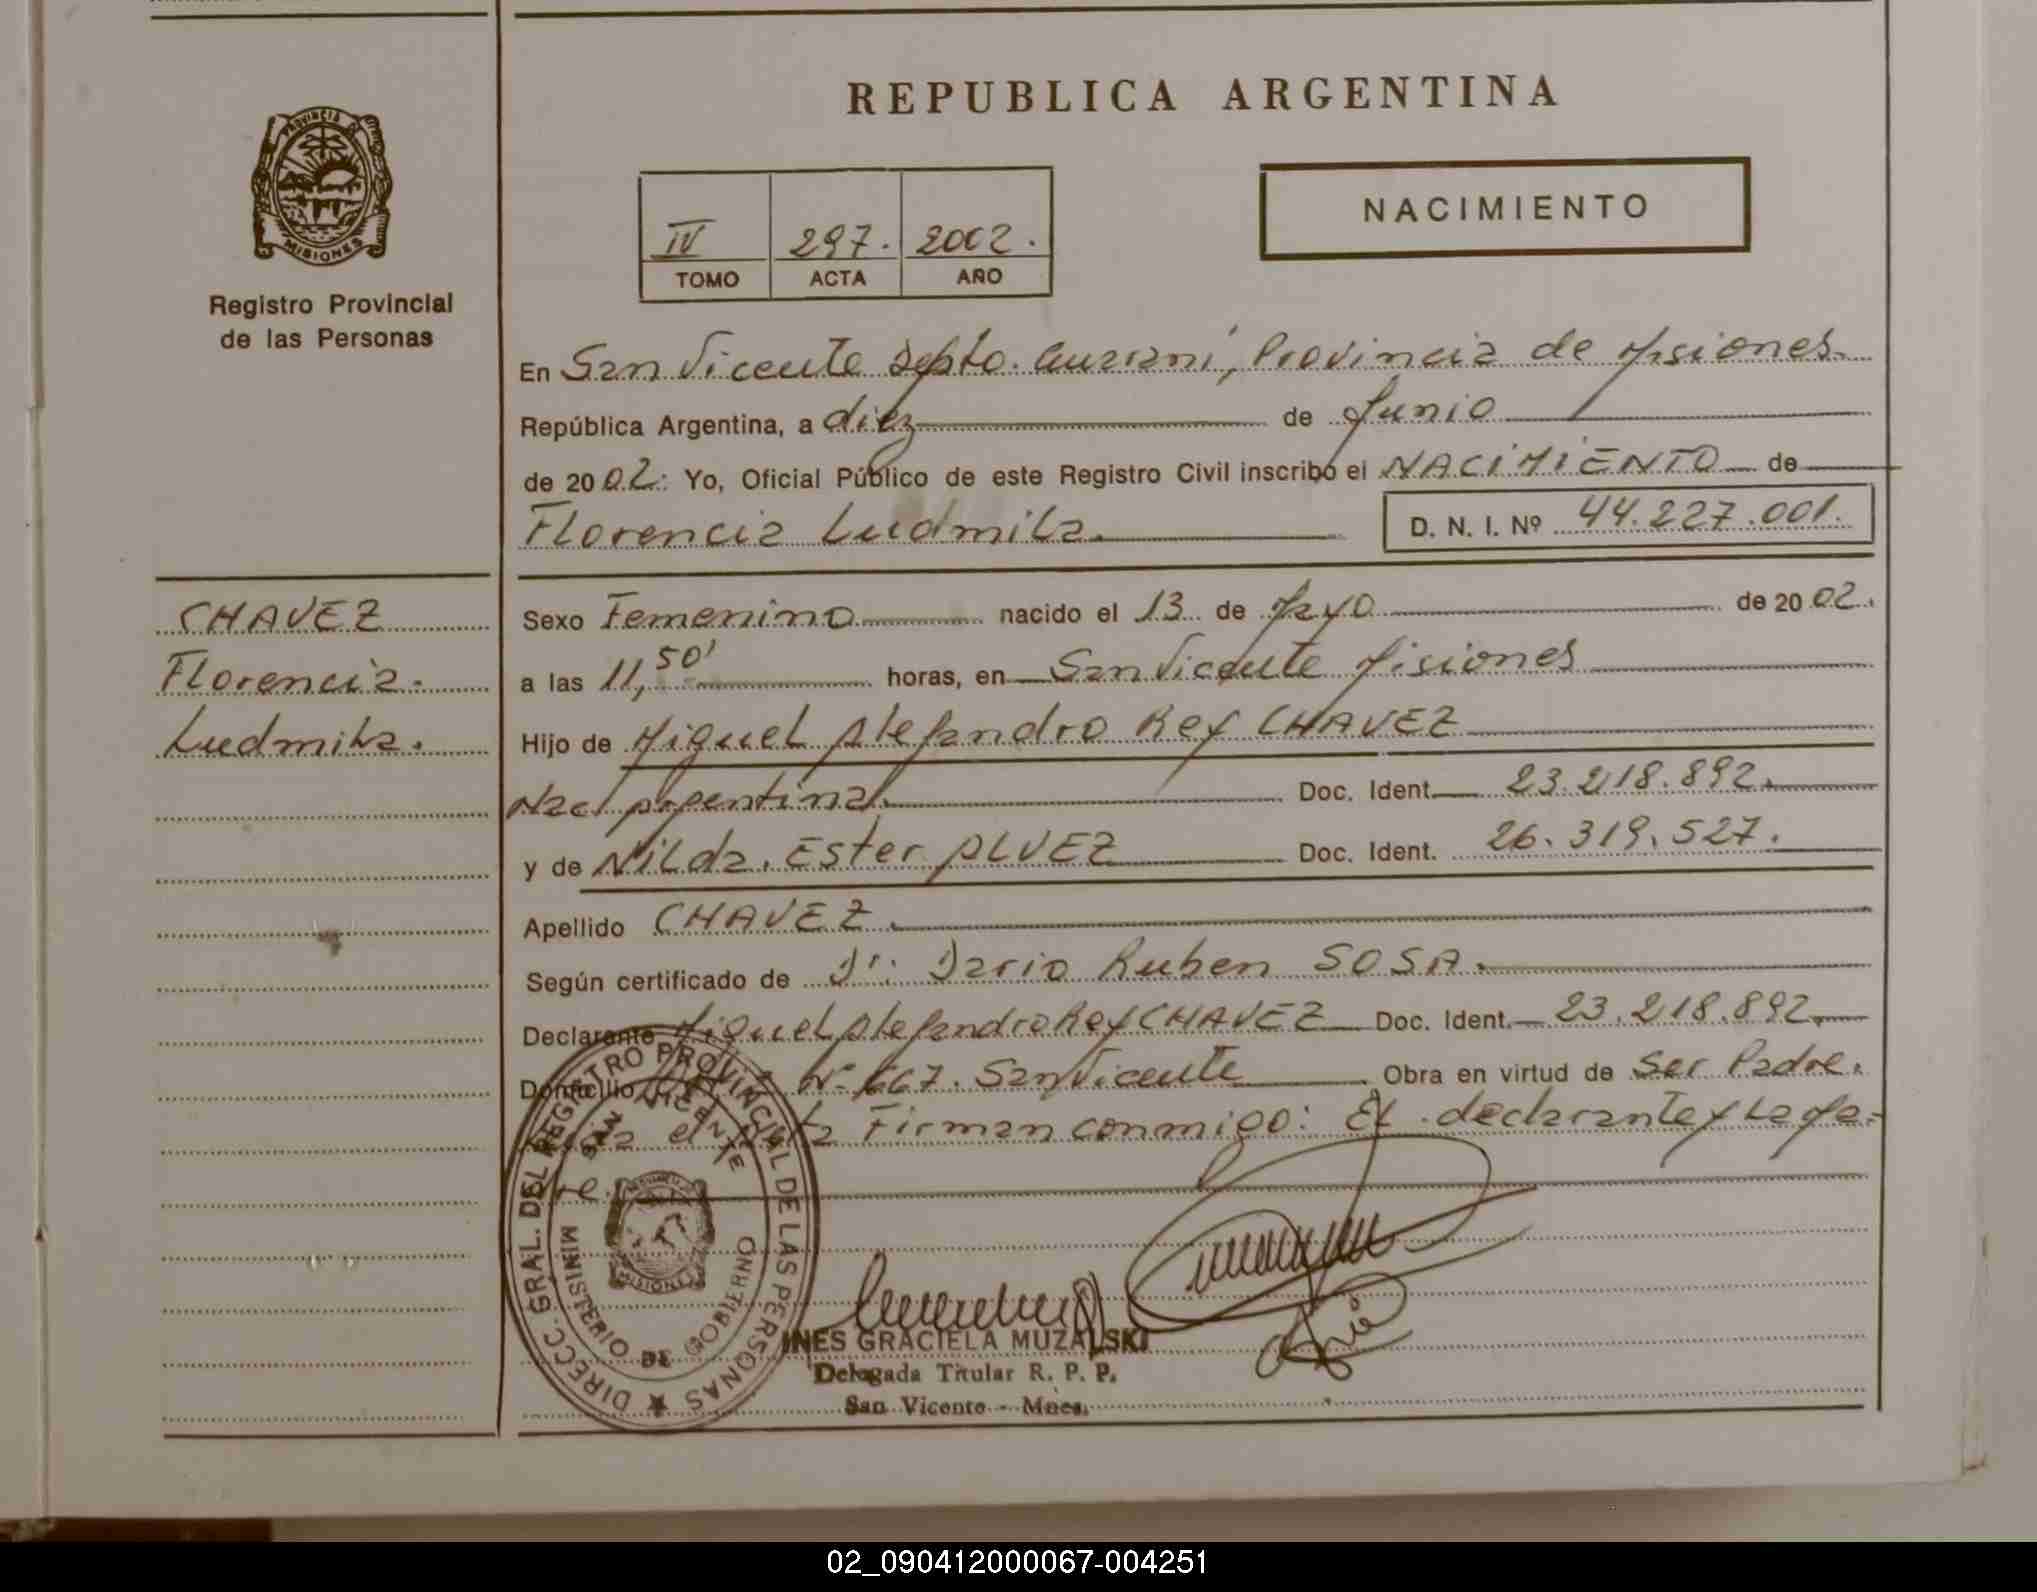 REPUBLICA ARGENTINA
PROVINCIA DE
MISIONES
Registro Provincial
de las Personas
NACIMIENTO
IV 297. 2002.
TOMO ACTA AÑO
En San Vicente Depto. Guaraní, Provincia de Misiones
República Argentina, a diez de Junio
de 2002: Yo, Oficial Público de este Registro Civil inscribo el NACIMIENTO de
Florencia Ludmila. D. N. I. Nº 44.227.001.
CHAVEZ
Florencia.
Ludmila.
Sexo Femenino nacido el 13 de Mayo de 2002.
a las 11,50' horas, en San Vicente Misiones
Hijo de Miguel Alejandro Rey CHAVEZ
Nac. Argentina. Doc. Ident. 23.218.892.
y de Nilda. Ester ALVEZ Doc. Ident. 26.319.527.
Apellido CHAVEZ.
Según certificado de Dr. Dario Ruben SOSA.
Declarante Miguel Alejandro Rey CHAVEZ Doc. Ident. 23.218.892.
Domicilio Nº 667. San Vicente Obra en virtud de Ser Padre.
el Firman conmigo: El declarante y La Ma-
dre.
DIRECC. GRAL. DEL REGISTRO PROVINCIAL DE LAS PERSONAS
SAN VICENTE
MISIONES
MINISTERIO DE GOBIERNO
INES GRACIELA MUZALSKI
Delegada Titular R. P. P.
San Vicente - Mnes.
02_090412000067-004251